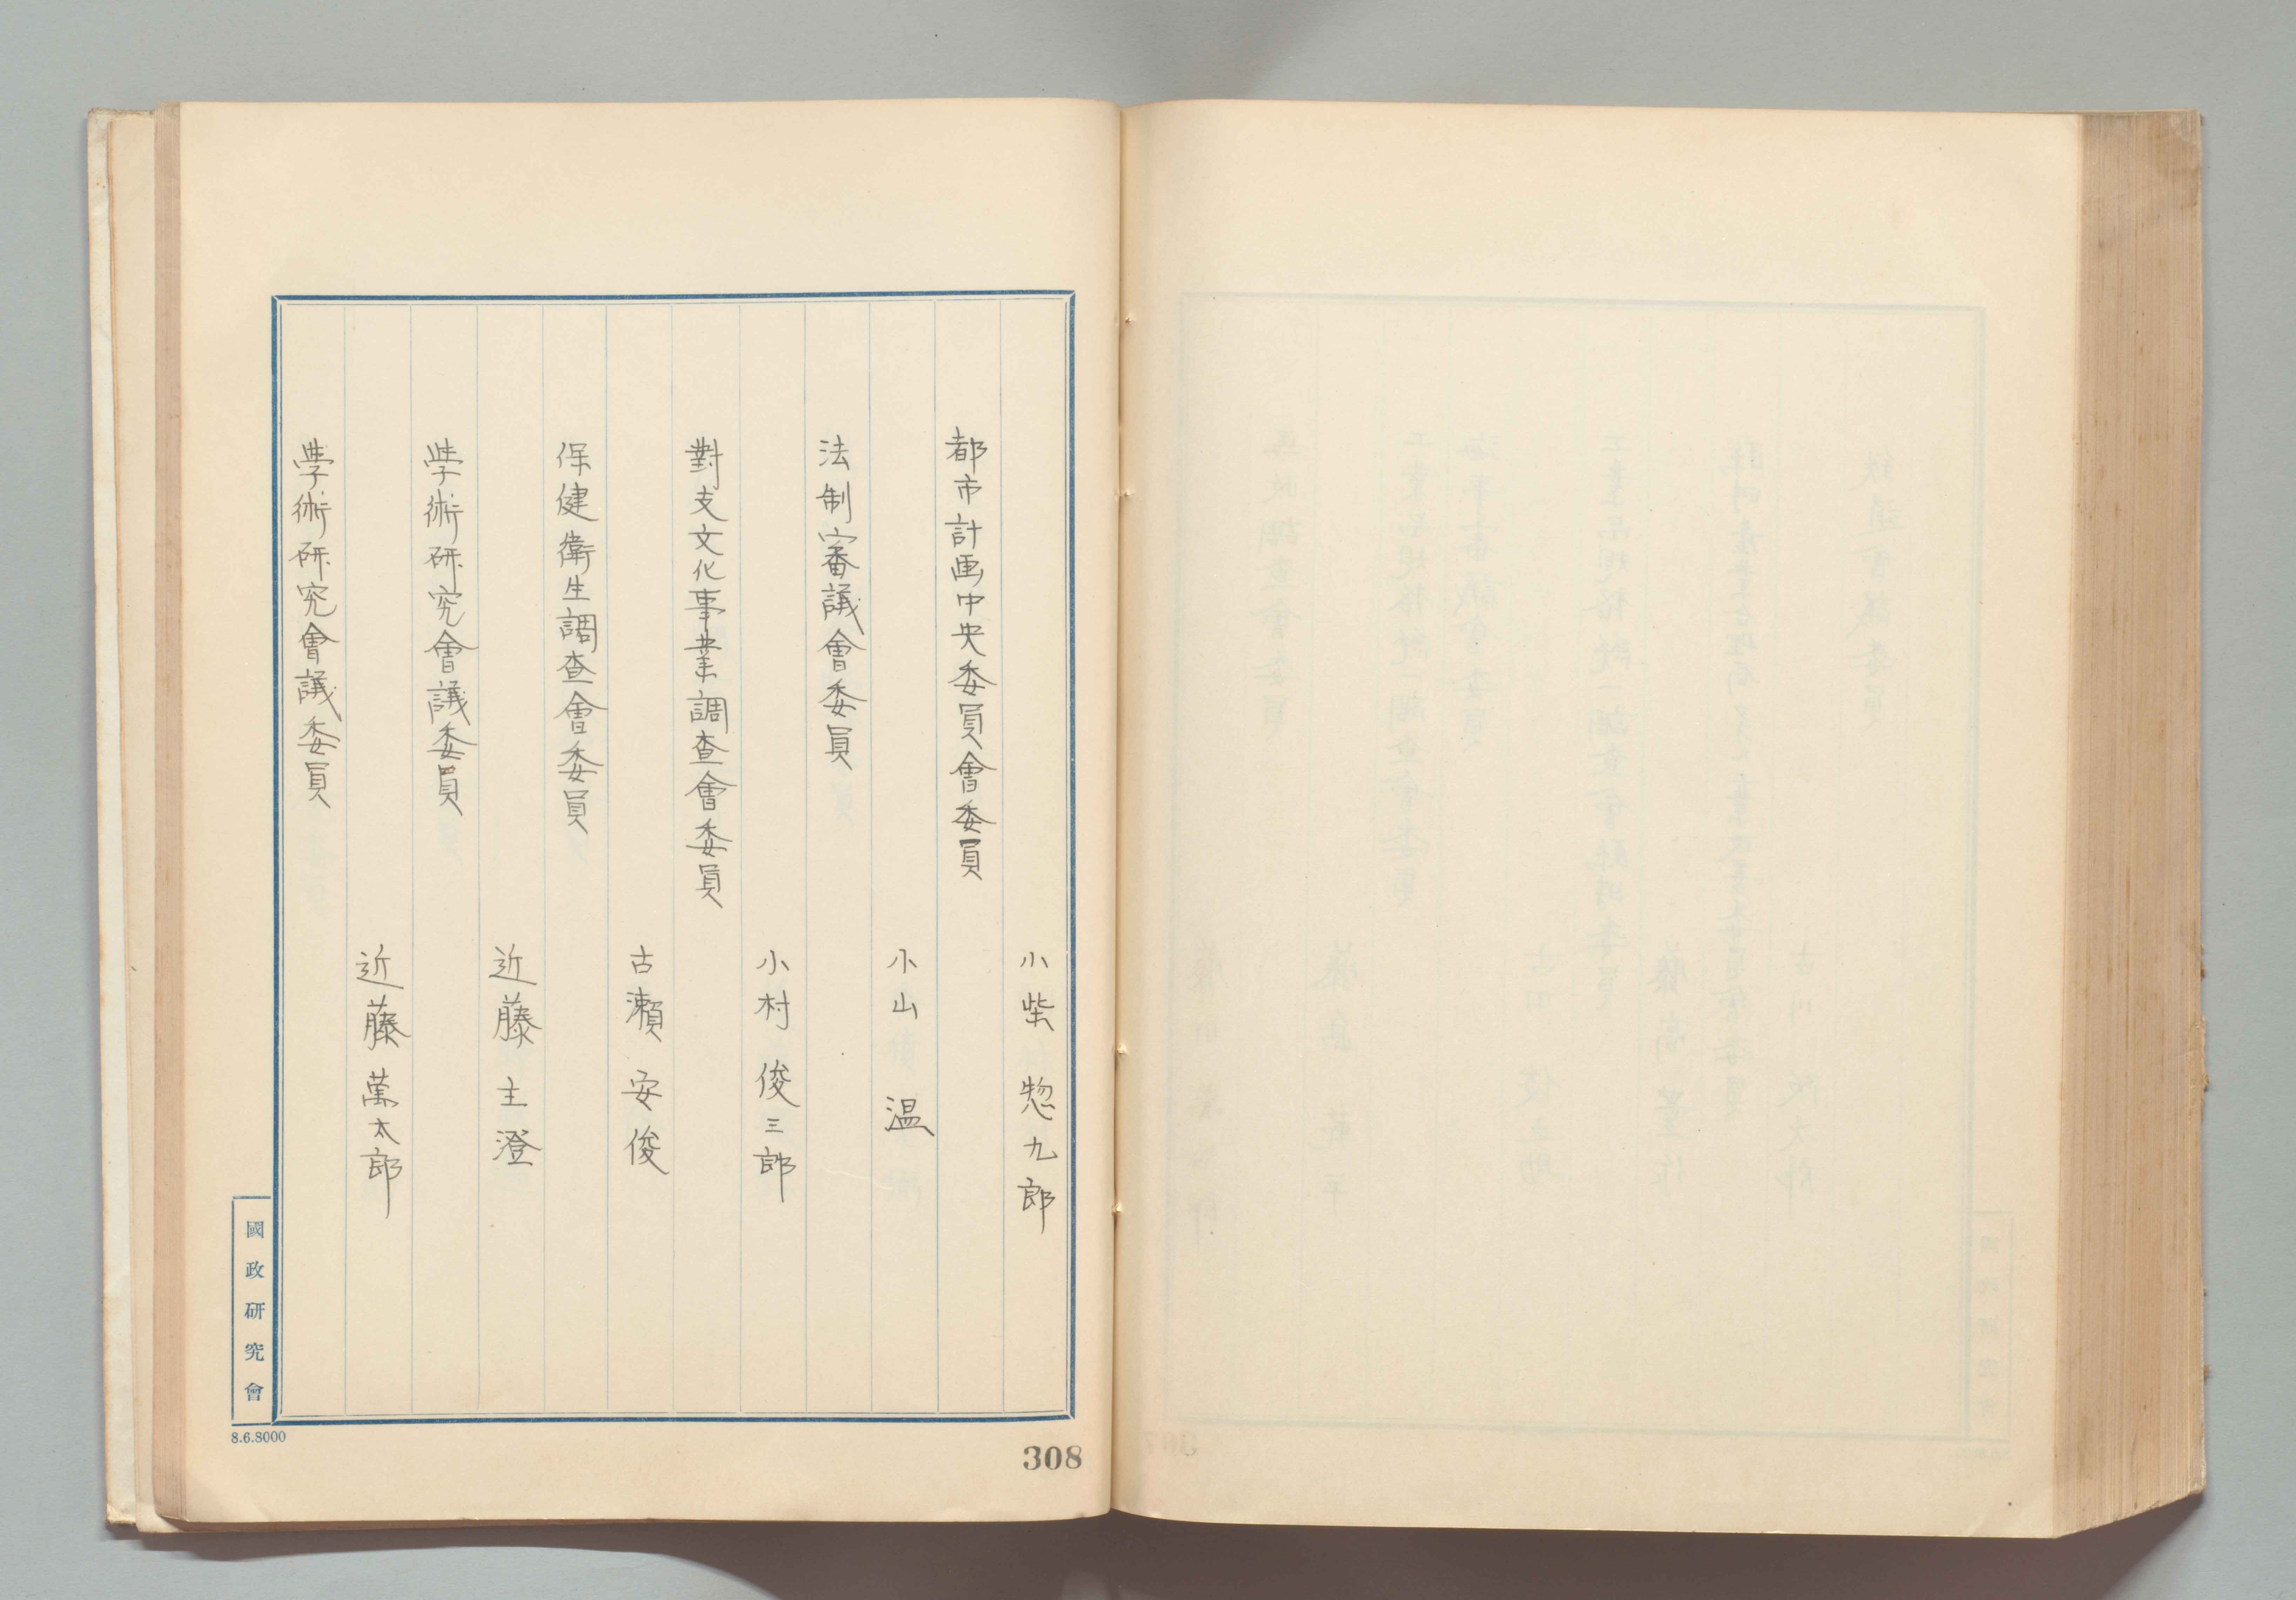 小柴惣九郎
都市計画中央委員會委員
小山温
法制審議會委員
小村俊三郎
對支文化事業調査會委員
古瀬安俊
保健衛生調査會委員
近藤主澄
學術研究會議委員
近藤萬太郎
學術研究會議委員
國政研究會
8.6.8000
308